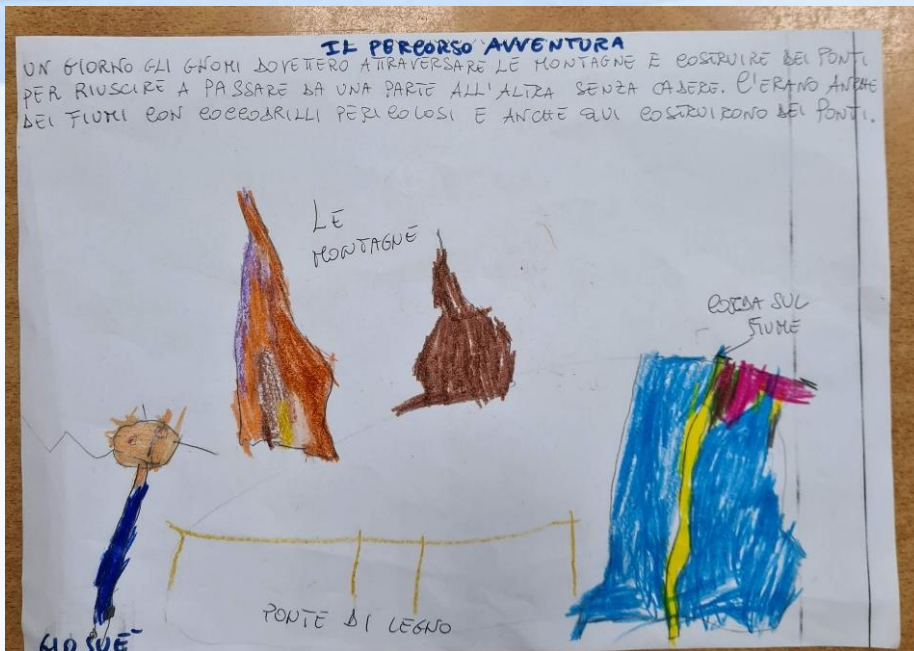 IL PERCORSO AVVENTURA
UN GIORNO GLI GNOMI DOVETTERO ATTRAVERSARE LE MONTAGNE E COSTRUIRE DEI PONTI
PER RIUSCIRE A PASSARE DA UNA PARTE ALL'ALTRA SENZA CADERE. C'ERANO ANCHE
DEI FIUMI CON COCCODRILLI PERICOLOSI E ANCHE QUI COSTRUIRONO DEI PONTI.
LE
MONTAGNE
CORDA SUL
FIUME
PONTE DI LEGNO
GIOSUE'